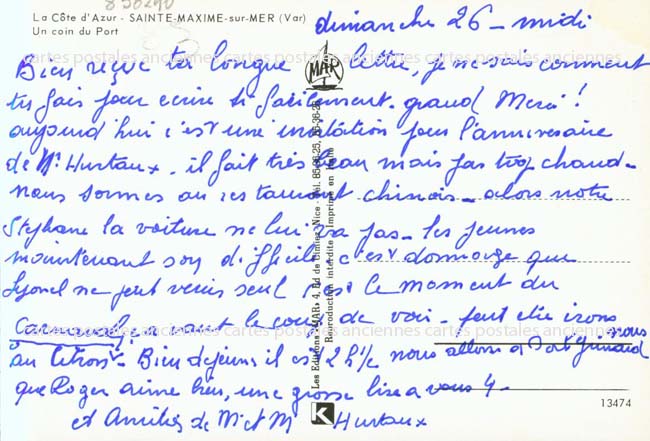 850290
La Côte d'Azur - SAINTE-MAXIME-sur-MER (Var)
Un coin du Port
dimanche 26 - midi
Bien reçue ta longue lettre, je ne sais comment
tu fais pour ecrire si facilement. grand Merci!
aujourd'hui c'est une invitation pour l'anniversaire
de Mr Hurtaux. il fait très beau mais pas trop chaud -
nous sommes au restaurant chinois - alors notre
Stephane la voiture ne lui va pas - les jeunes
maintenant son difficile c'est dommage que
Lyonel ne peut venir seul le moment du
vaut le coup de voir - peut etre irons nous
au - Bien dejeuné il est 2 h 1/2 nous allons a Port Grimaud
que Roger aime bien, une grosse bise a vous 4 -
et Amitiés de Mr et M Hurtaux
MAR
Les Editions "MAR", 4, Bd de Cimiez, Nice
Reproduction interdite - Imprimé en Italie
K
13474
cartes postales anciennes cartes postales anciennes cartes postales anciennes